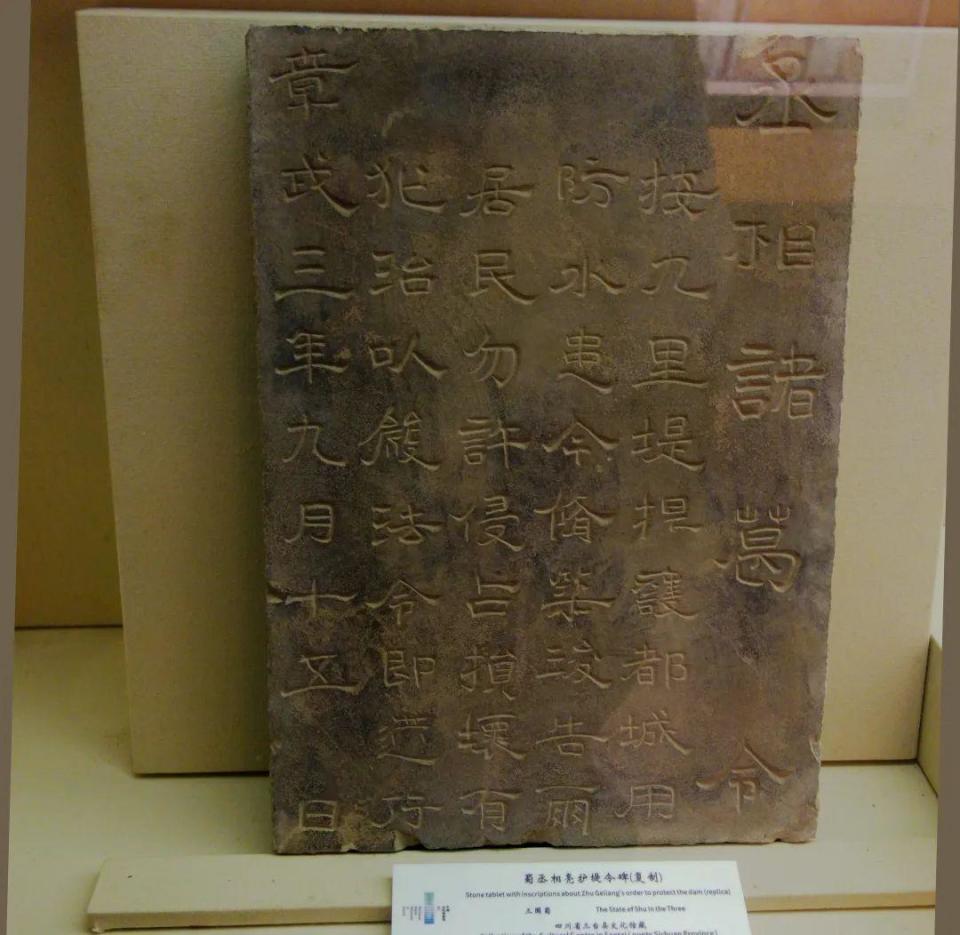 丞相諸葛令
按九里堤捍護都城用
防水患今脩築竣告爾
居民勿許侵占損壞有
犯治以嚴法令即遵行
章武三年九月十五日
蜀丞相亮护堤令碑(复制)
Stone tablet with inscriptions about Zhu Geliang's order to protect the dam (replica)
三国蜀 The State of Shu in the Three
四川省三台县文化馆藏